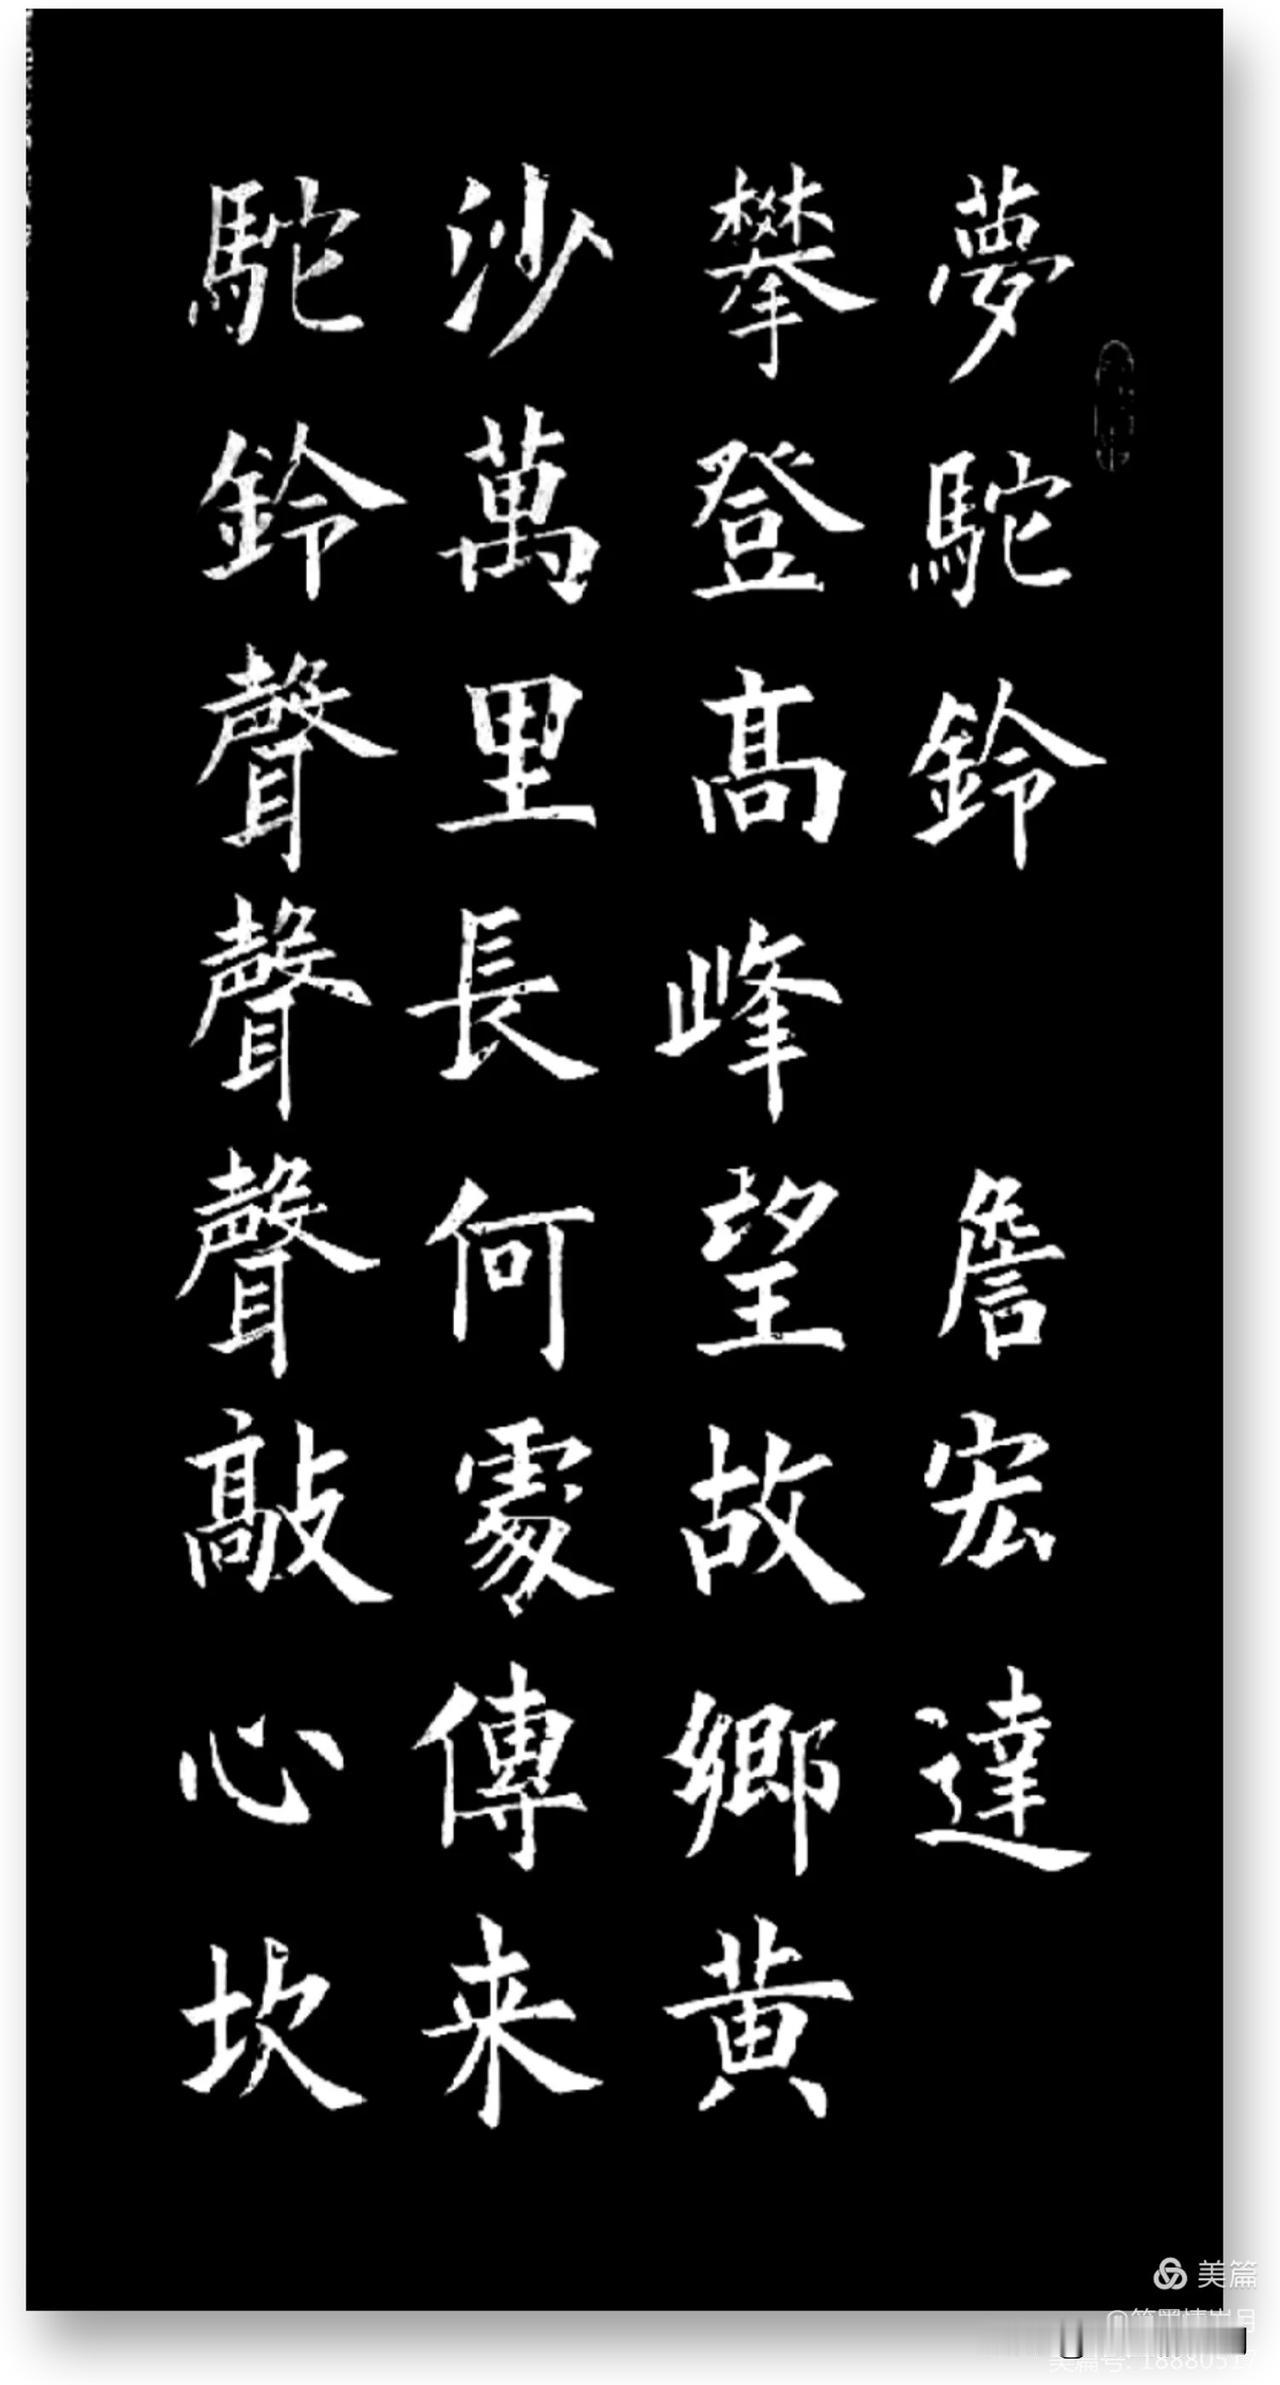 夢駝鈴 詹宏達
攀登高峰望故鄉黃
沙萬里長何處傳来
駝鈴聲聲聲敲心坎
美篇
美篇号: 18880517